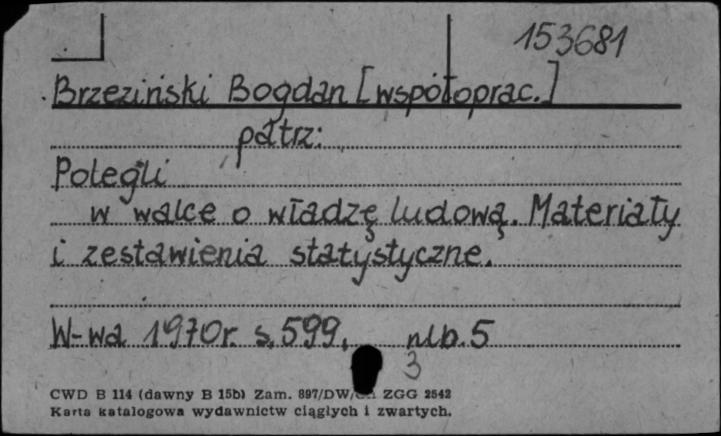 153681
Brzeziński Bogdan [współoprac.]
patrz:
Polegli
w walce o władzę ludową. Materiały
i zestawienia statystyczne.
W-wa 1970r. s. 599, nlb. 5
3
CWD B 114 (dawny B 15b) Zam. 897/DW/ ZGG 2542
Karta katalogowa wydawnictw ciągłych i zwartych.